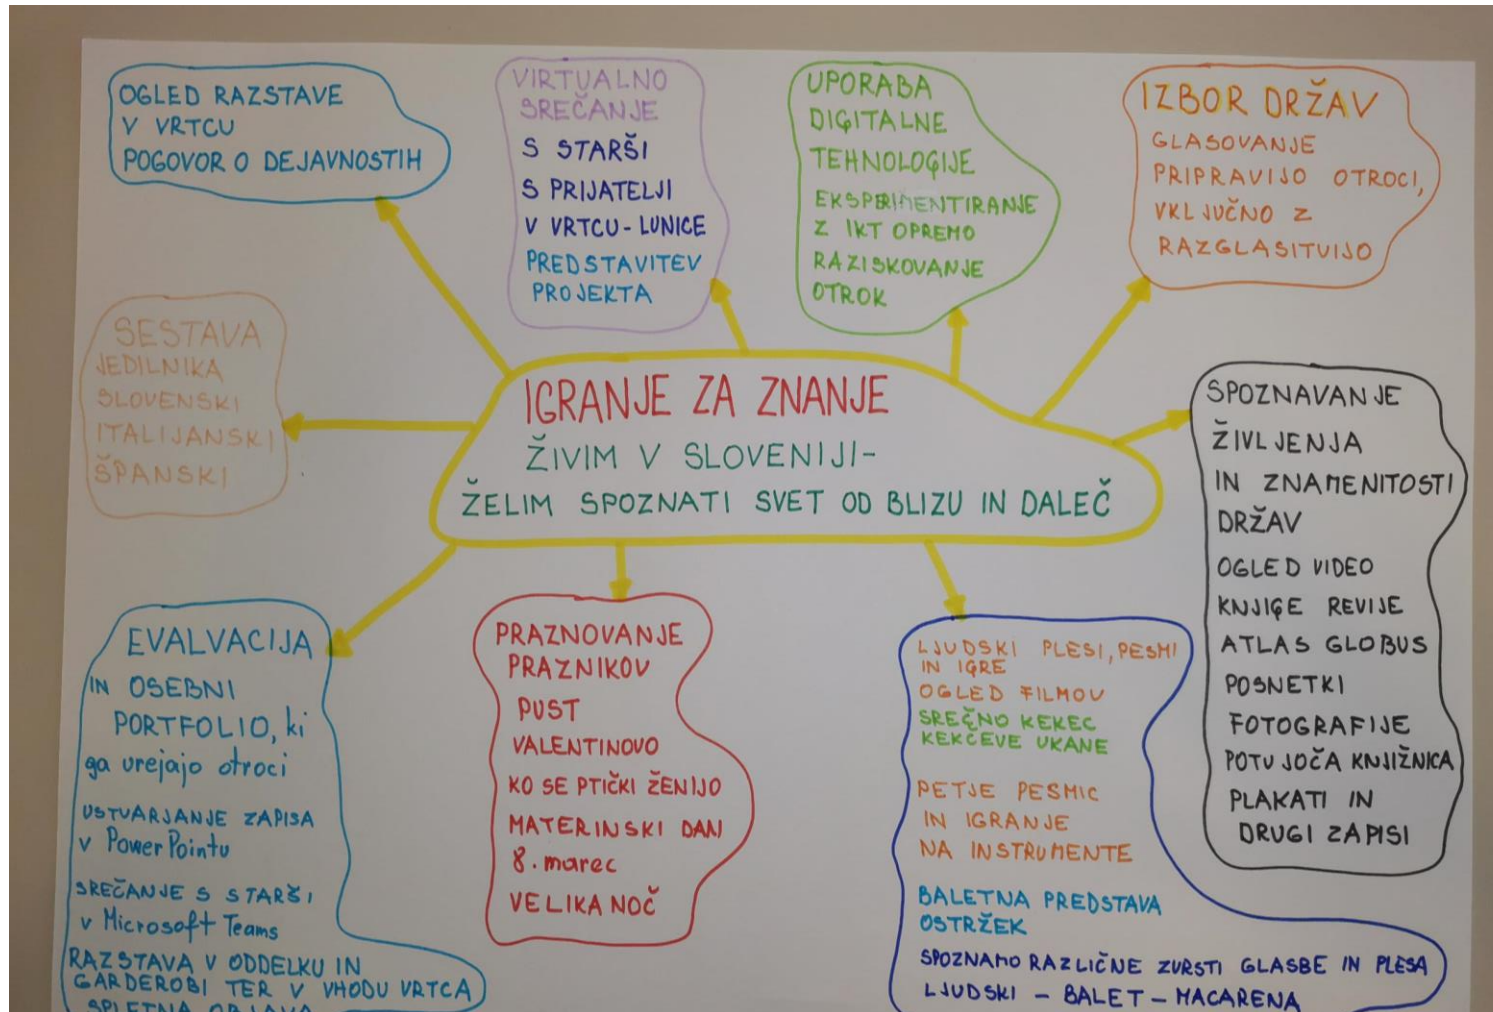 OGLED RAZSTAVE
V VRTCU
POGOVOR O DEJAVNOSTIH
VIRTUALNO
SREČANJE
S STARŠI
S PRIJATELJI
V VRTCU - LUNICE
PREDSTAVITEV
PROJEKTA
UPORABA
DIGITALNE
TEHNOLOGIJE
EKSPERIMENTIRANJE
Z IKT OPREMO
RAZISKOVANJE
OTROK
IZBOR DRŽAV
GLASOVANJE
PRIPRAVIJO OTROCI,
VKLJUČNO Z
RAZGLASITVIJO
SESTAVA
JEDILNIKA
SLOVENSKI
ITALIJANSKI
ŠPANSKI
IGRANJE ZA ZNANJE
ŽIVIM V SLOVENIJI-
ŽELIM SPOZNATI SVET OD BLIZU IN DALEČ
SPOZNAVANJE
ŽIVLJENJA
IN ZNAMENITOSTI
DRŽAV
OGLED VIDEO
KNJIGE REVIJE
ATLAS GLOBUS
POSNETKI
FOTOGRAFIJE
POTUJOČA KNJIŽNICA
PLAKATI IN
DRUGI ZAPISI
EVALVACIJA
IN OSEBNI
PORTFOLIO, ki
ga urejajo otroci
USTVARJANJE ZAPISA
v PowerPointu
SREČANJE S STARŠI
v Microsoft Teams
RAZSTAVA V ODDELKU IN
GARDEROBI TER V VHODU VRTCA
SPLETNA OBJAVA
PRAZNOVANJE
PRAZNIKOV
PUST
VALENTINOVO
KO SE PTIČKI ŽENIJO
MATERINSKI DAN
8. marec
VELIKA NOČ
LJUDSKI PLESI, PESMI
IN IGRE
OGLED FILMOV
SREČNO KEKEC
KEKČEVE UKANE
PETJE PESMIC
IN IGRANJE
NA INSTRUMENTE
BALETNA PREDSTAVA
OSTRŽEK
SPOZNAMO RAZLIČNE ZVRSTI GLASBE IN PLESA
LJUDSKI - BALET - MACARENA